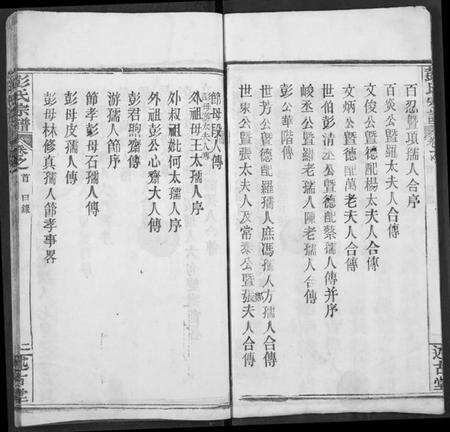 百忍暨項孺人合序
百炎公暨羅太夫人合傳
文俊公暨德配楊太夫人合傳
文炳公暨德配萬老夫人合傳
世伯彭清丞公暨德配蔡孺人傳并序
峻丞公暨羅老孺人陳老孺人合傳
彭公華階傳
世芳公暨德配羅孺人庶馮孺人方孺人合傳
世來公暨張太夫人及常棻公暨張夫人合傳
述古堂
彭氏宗譜
卷之首 目錄
節母段人傳
外祖母王太孺人序
外叔祖妣何太孺人序
外祖彭公心齋大人傳
彭君聘齋傳
游孺人節序
節孝彭母石孺人傳
彭母皮孺人傳
彭母林修真孺人節孝事畧
述古堂